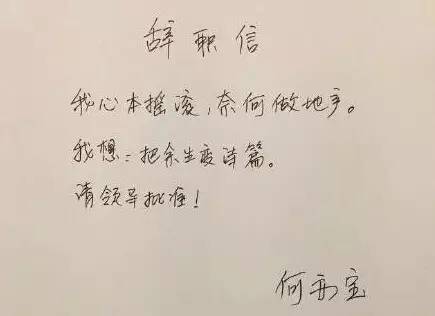 辞职信
我心本摇滚，奈何做地产。
我想：把余生变诗篇。
请领导批准！
何南宝